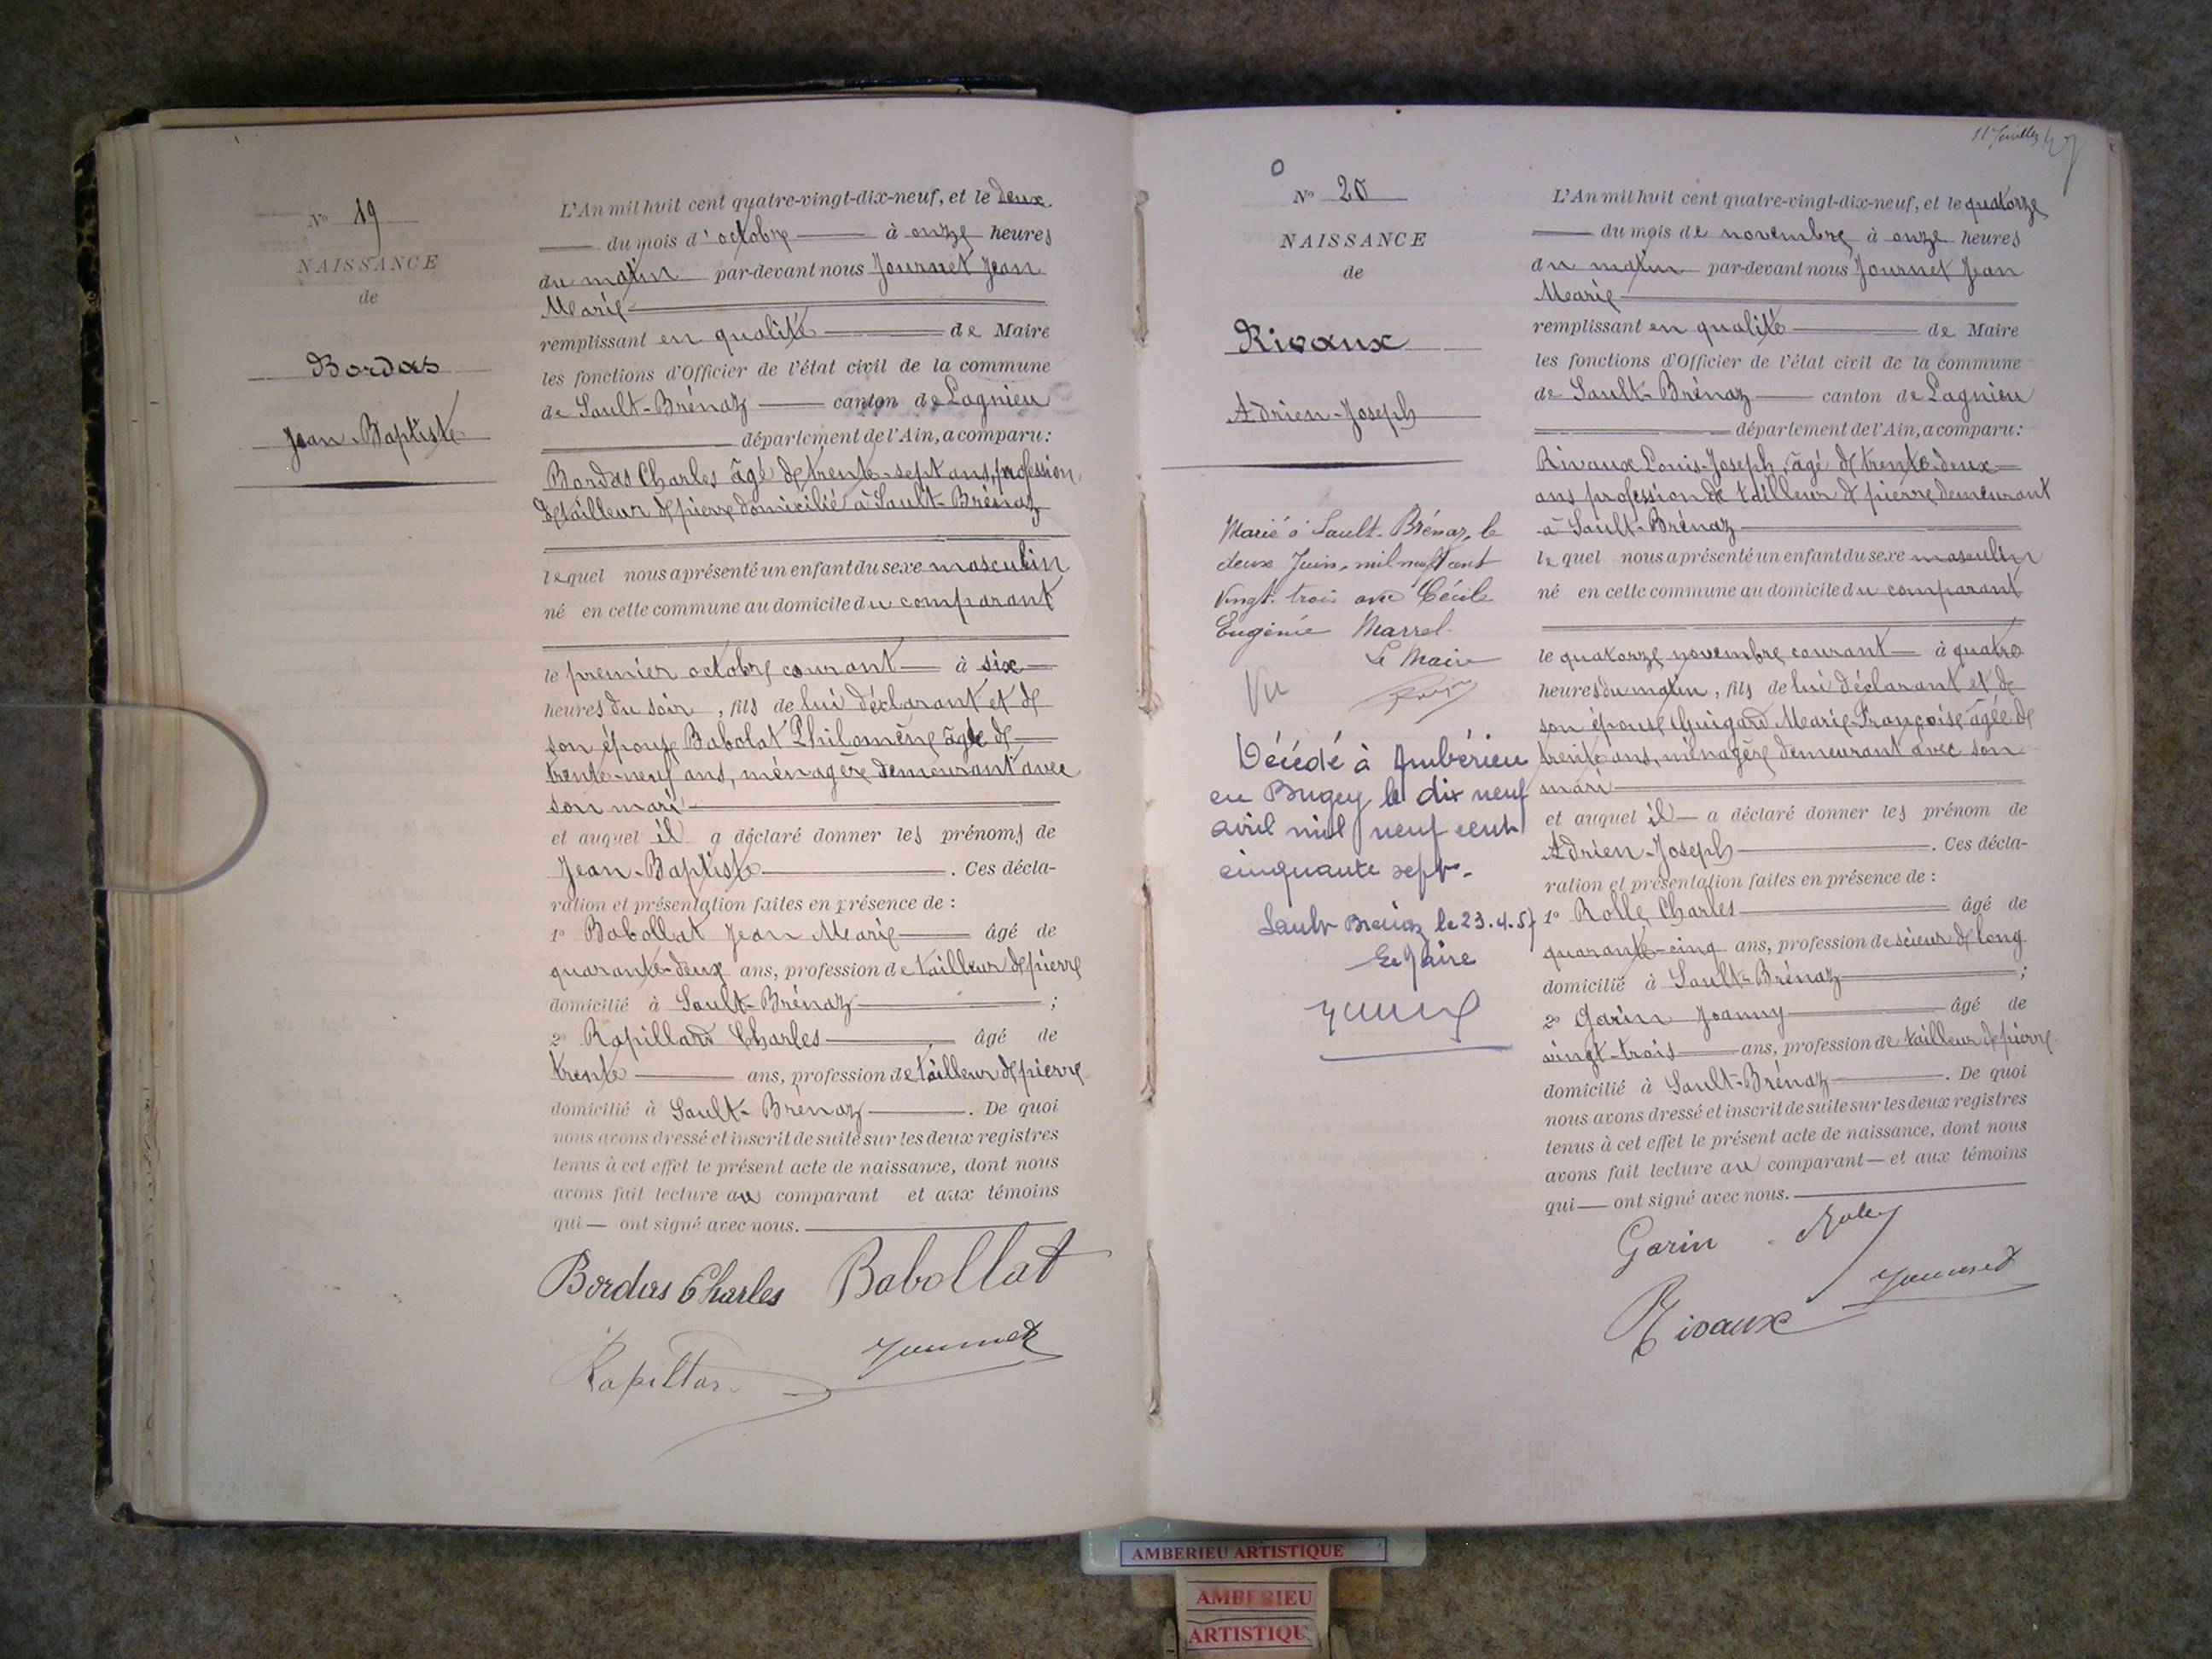 N° 19
NAISSANCE
de
Bordas
Jean-Baptiste
L'An mil huit cent quatre-vingt-dix-neuf, et le deux
du mois d'octobre à onze heures
du matin par-devant nous Journet Jean
Marie
remplissant en qualité de Maire
les fonctions d'Officier de l'état civil de la commune
de Sault-Brénaz canton de Lagnieu
département de l'Ain, a comparu:
Bordas Charles âgé de trente-sept ans, profession
de tailleur de pierre domicilié à Sault-Brénaz
lequel nous a présenté un enfant du sexe masculin
né en cette commune au domicile du comparant
le premier octobre courant à six
heures du soir, fils de lui déclarant et de
son épouse Babolat Philomène âgée de
trente-neuf ans, ménagère demeurant avec
son mari
et auquel il a déclaré donner les prénoms de
Jean-Baptiste. Ces décla-
ration et présentation faites en présence de :
1° Babollat Jean Marie âgé de
quarante-deux ans, profession de tailleur de pierre
domicilié à Sault-Brénaz ;
2° Rapillard Charles âgé de
trente ans, profession de tailleur de pierre
domicilié à Sault-Brénaz. De quoi
nous avons dressé et inscrit de suite sur les deux registres
tenus à cet effet le présent acte de naissance, dont nous
avons fait lecture au comparant et aux témoins
qui ont signé avec nous.
Bordas Charles Babollat
Journet
11 Feuillets
N° 20
NAISSANCE
de
Rivaux
Adrien-Joseph
Marié à Sault-Brénaz, le
deux Juin mil neuf cent
vingt-trois avec Cécile
Eugénie Marrel
Le Maire
Vu
Décédé à Ambérieu
en Bugey le dix neuf
avril mil neuf cent
cinquante sept.
Sault Brénaz le 23.4.57
Le Maire
L'An mil huit cent quatre-vingt-dix-neuf, et le quatorze
du mois de novembre à onze heures
du matin par-devant nous Journet Jean
Marie
remplissant en qualité de Maire
les fonctions d'Officier de l'état civil de la commune
de Sault-Brénaz canton de Lagnieu
département de l'Ain, a comparu:
Rivaux Louis-Joseph, âgé de trente-deux
ans profession de tailleur de pierre demeurant
à Sault-Brénaz
lequel nous a présenté un enfant du sexe masculin
né en cette commune au domicile du comparant
le quatorze novembre courant à quatre
heures du matin, fils de lui déclarant et de
son épouse Guigard Marie-Françoise âgée de
trente ans, ménagère demeurant avec son
mari
et auquel il a déclaré donner les prénom de
Adrien-Joseph. Ces décla-
ration et présentation faites en présence de :
1° Rolle Charles âgé de
quarante-cinq ans, profession de scieur de long
domicilié à Sault-Brénaz ;
2° Garin Joanny âgé de
vingt-trois ans, profession de tailleur de pierre
domicilié à Sault-Brénaz. De quoi
nous avons dressé et inscrit de suite sur les deux registres
tenus à cet effet le présent acte de naissance, dont nous
avons fait lecture au comparant et aux témoins
qui ont signé avec nous.
Garin
Rivaux Journet
AMBERIEU ARTISTIQUE
AMBERIEU
ARTISTIQUE